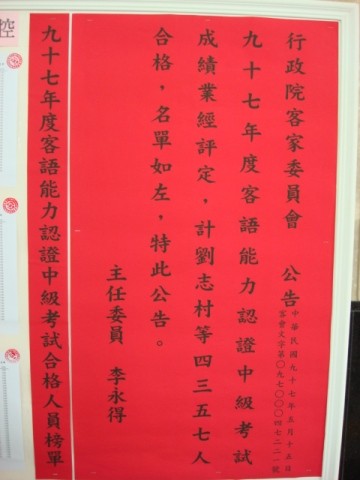 行政院客家委員會 公告
中華民國九十七年五月十五日
客會文字第〇九七〇〇〇四七二二一號
九十七年度客語能力認證中級考試
成績業經評定，計劉志村等四三五七人
合格，名單如左，特此公告。
主任委員 李永得
九十七年度客語能力認證中級考試合格人員榜單